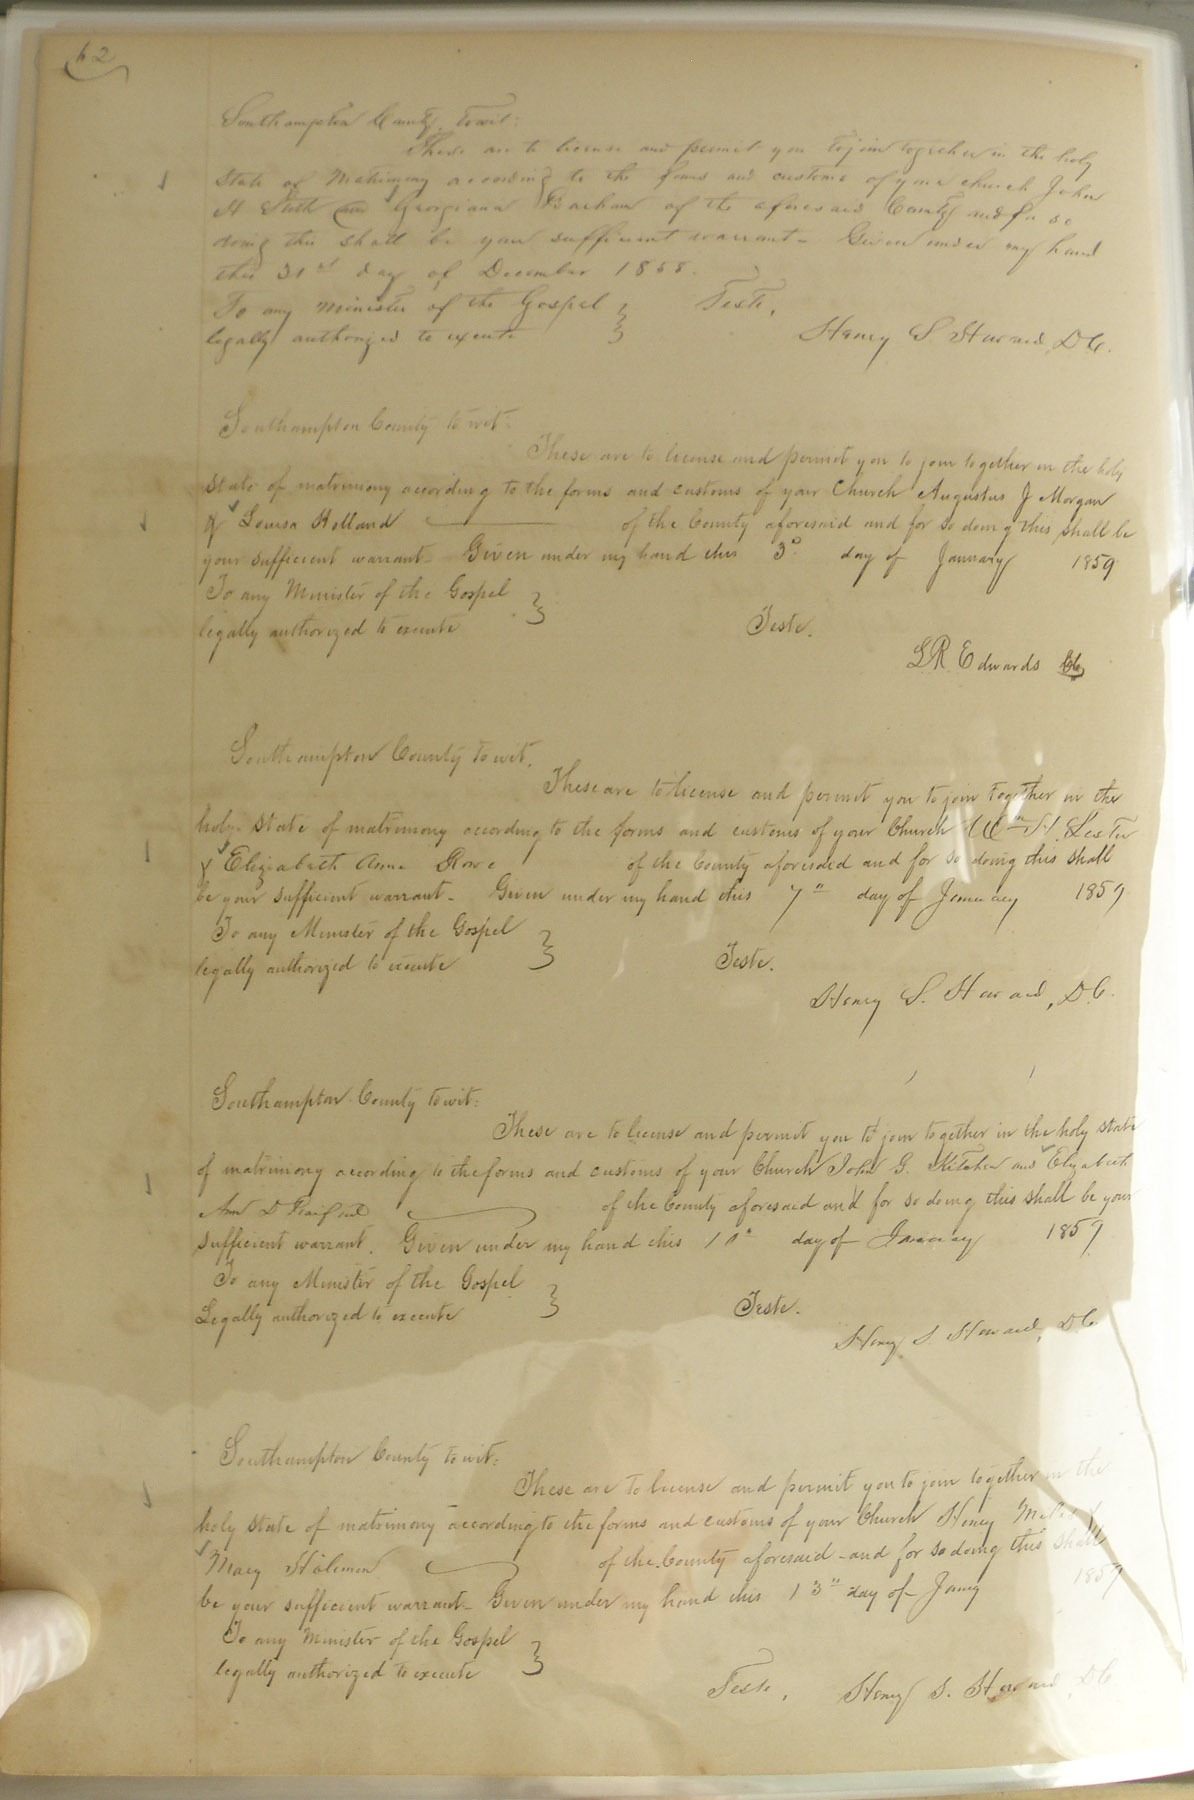 62
Southampton County, towit:
These are to license and permit you to join together in the holy
state of Matrimony according to the forms and customs of your church John
H Stith and Georgiana Barham of the aforesaid County and for so
doing this shall be your sufficient warrant - Given under my hand
this 31st day of December 1858.
To any minister of the Gospel } Teste,
legally authorized to execute
Henry S. Howard, D.C.
Southampton County to wit:
These are to license and permit you to join together in the holy
state of matrimony according to the forms and customs of your Church Augustus J Morgan
& Louisa Holland of the County aforesaid and for so doing this shall be
your sufficient warrant - Given under my hand this 3d day of January 1859
To any Minister of the Gospel }
legally authorized to execute Teste.
L R Edwards
Southampton County to wit.
These are to license and permit you to join together in the
holy state of matrimony according to the forms and customs of your Church Wm H. Lester
& Elizabeth Ann Rowe of the County aforesaid and for so doing this shall
be your sufficient warrant - Given under my hand this 7" day of January 1859
To any Minister of the Gospel }
legally authorized to execute Teste.
Henry S. Howard, D.C.
Southampton County to wit:
These are to license and permit you to join together in the holy state
of matrimony according to the forms and customs of your Church John G. Kitchen and Elizabeth
Ann D of the County aforesaid and for so doing this shall be your
sufficient warrant. Given under my hand this 10" day of January 1859
To any Minister of the Gospel }
Legally authorized to execute Teste.
Henry S. Howard, D.C.
Southampton County to wit:
These are to license and permit you to join together in the
holy state of matrimony according to the forms and customs of your Church Henry &
Mary of the County aforesaid - and for so doing this shall
be your sufficient warrant - Given under my hand this 13" day of Jany 1859
To any Minister of the Gospel }
legally authorized to execute
Teste, Henry S. Howard, D.C.